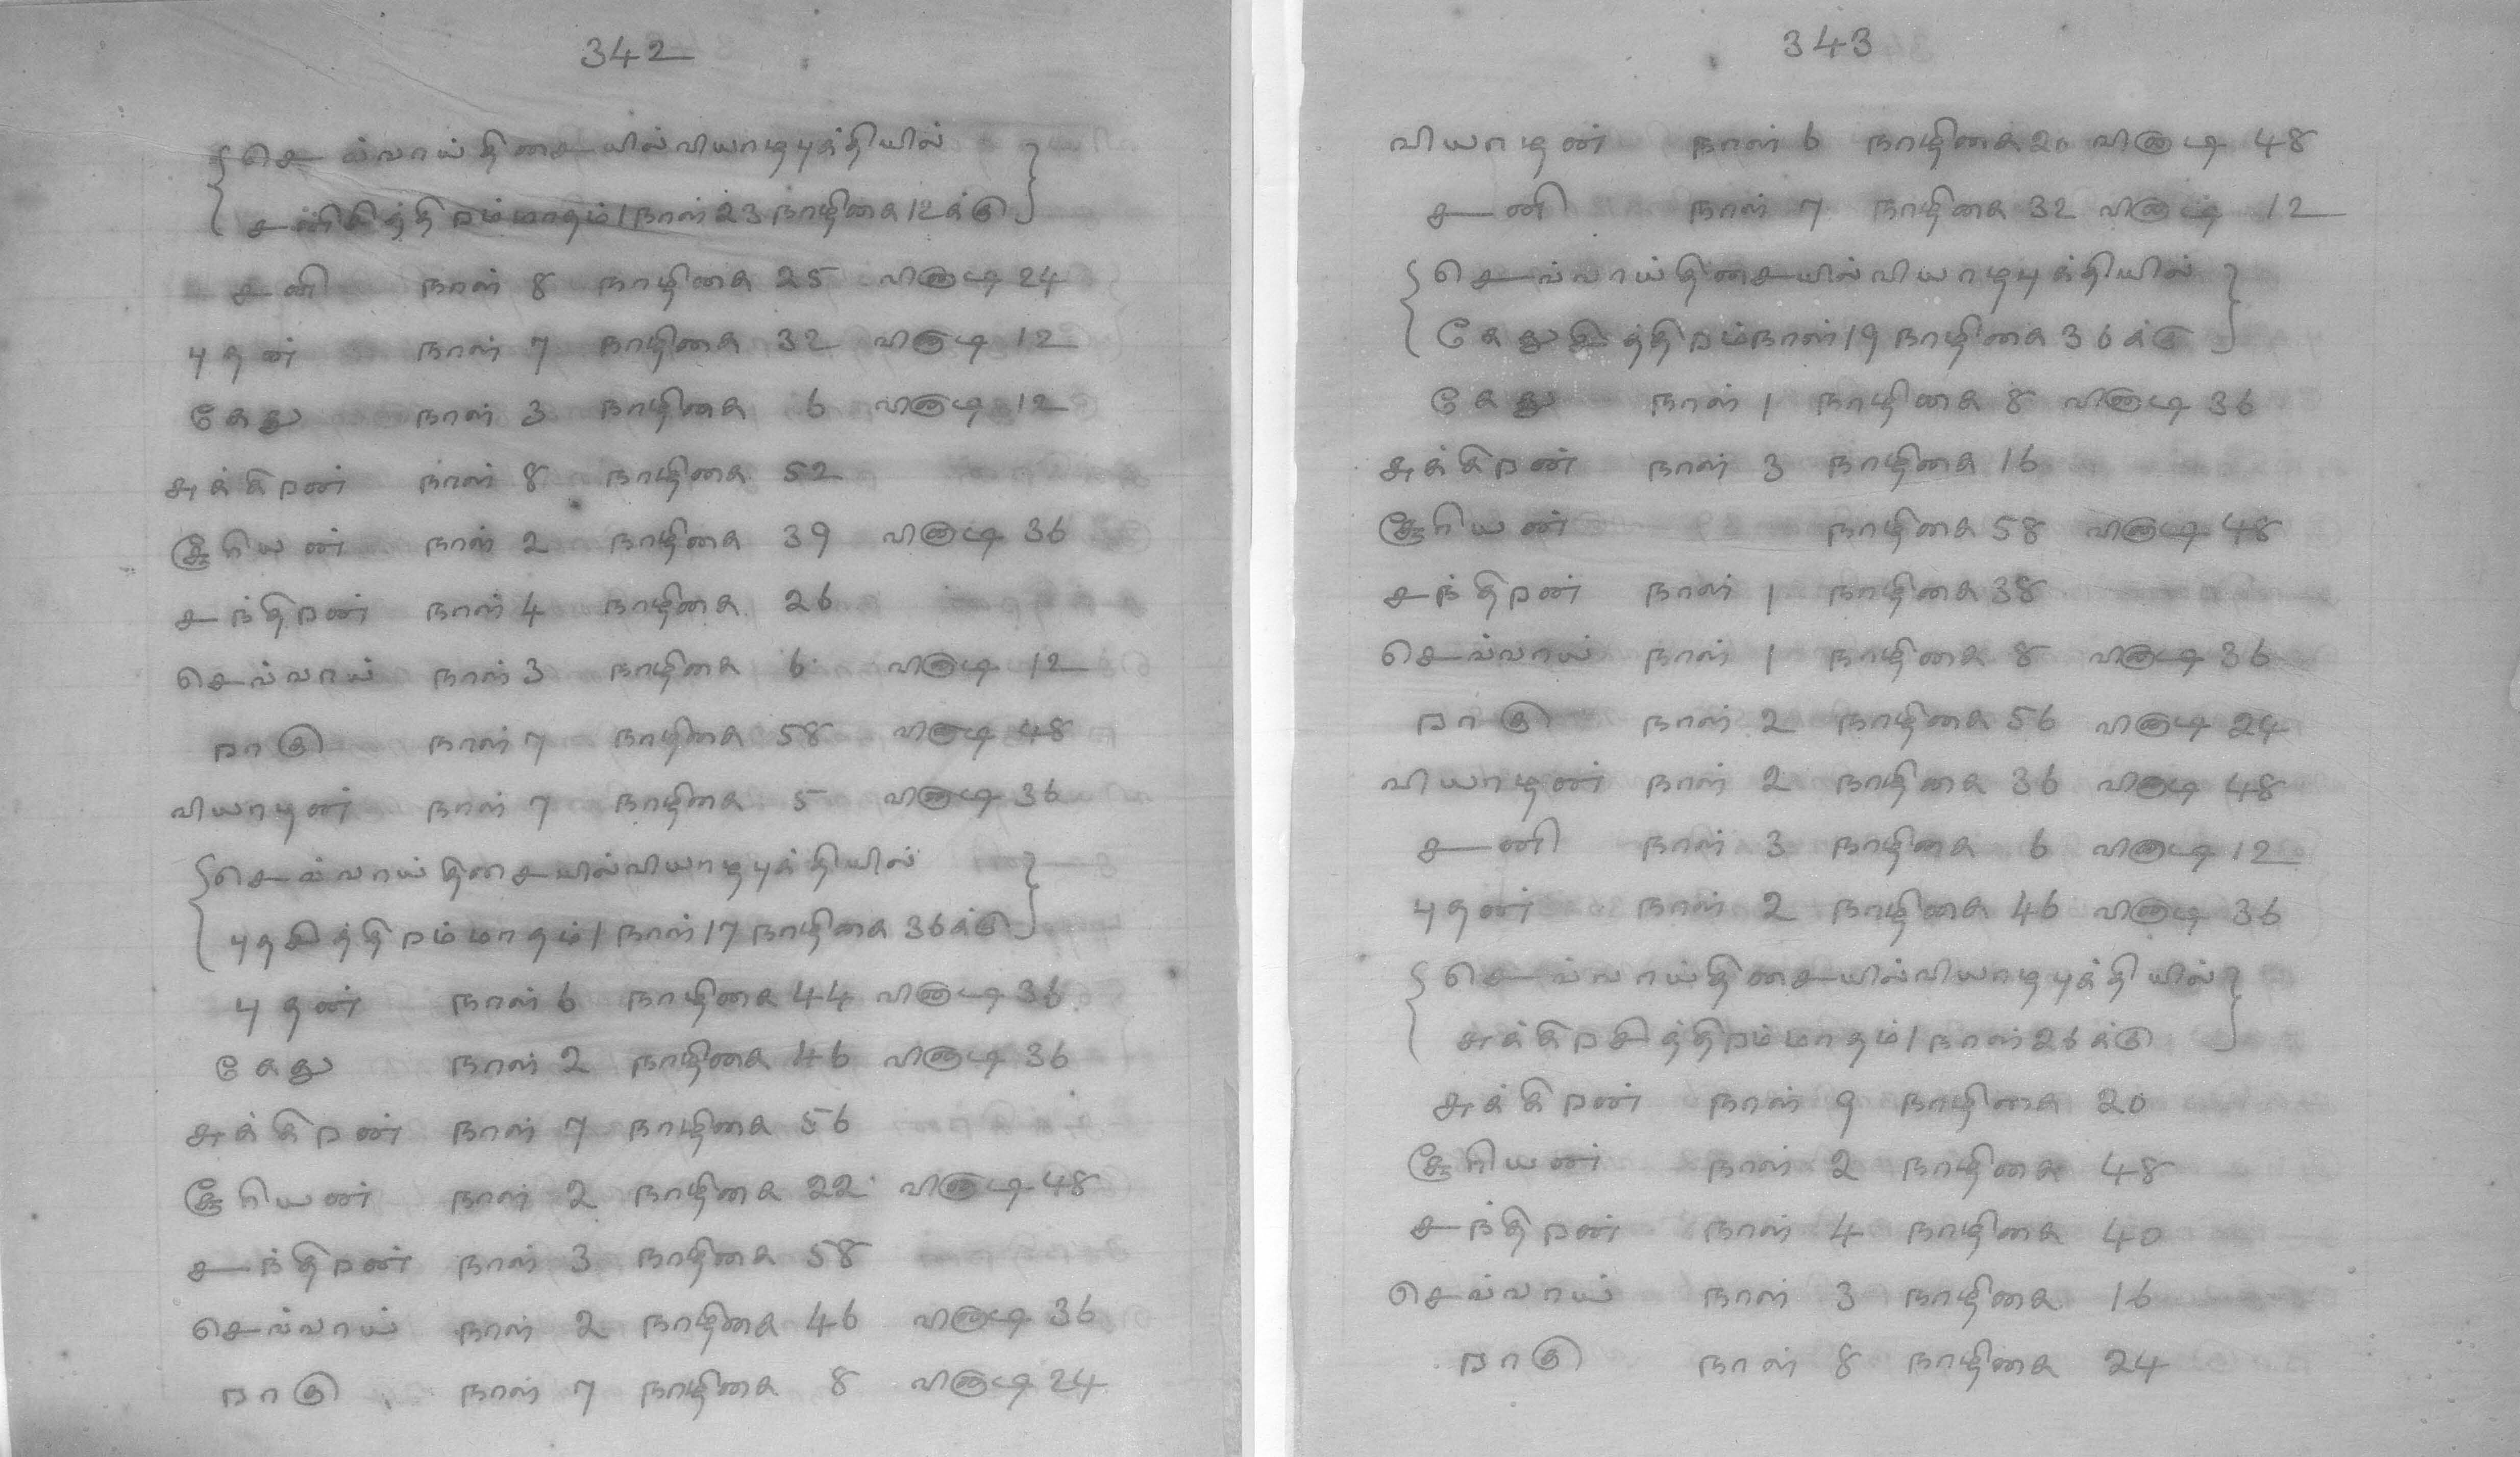 342
{செவ்வாய்திசையில்வியாழபுக்தியில்
சனிசித்திறம்மாதம்1நாள்23நாழிகை12க்கு}
சனி நாள் 8 நாழிகை 25 விநாடி 24
புதன் நாள் 7 நாழிகை 32 விநாடி 12
கேது நாள் 3 நாழிகை 6 விநாடி 12
சுக்கிறன் நாள் 8 நாழிகை 52
சூரியன் நாள் 2 நாழிகை 39 விநாடி 36
சந்திறன் நாள் 4 நாழிகை 26
செவ்வாய் நாள் 3 நாழிகை 6 விநாடி 12
றாகு நாள் 7 நாழிகை 58 விநாடி 48
வியாழன் நாள் 7 நாழிகை 5 விநாடி 36
{செவ்வாய்திசையில்வியாழபுக்தியில்
புதசித்திறம்மாதம்1நாள்17நாழிகை36க்கு}
புதன் நாள் 6 நாழிகை 44 விநாடி 36
கேது நாள் 2 நாழிகை 46 விநாடி 36
சுக்கிறன் நாள் 7 நாழிகை 56
சூரியன் நாள் 2 நாழிகை 22 விநாடி 48
சந்திறன் நாள் 3 நாழிகை 58
செவ்வாய் நாள் 2 நாழிகை 46 விநாடி 36
றாகு நாள் 7 நாழிகை 8 விநாடி 24
343
வியாழன் நாள் 6 நாழிகை 20 விநாடி 48
சனி நாள் 7 நாழிகை 32 விநாடி 12
{செவ்வாய்திசையில்வியாழபுக்தியில்
கேதுசித்திறம்நாள்19நாழிகை36க்கு}
கேது நாள் 1 நாழிகை 8 விநாடி 36
சுக்கிறன் நாள் 3 நாழிகை 16
சூரியன் நாழிகை 58 விநாடி 48
சந்திறன் நாள் 1 நாழிகை 38
செவ்வாய் நாள் 1 நாழிகை 8 விநாடி 36
றாகு நாள் 2 நாழிகை 56 விநாடி 24
வியாழன் நாள் 2 நாழிகை 36 விநாடி 48
சனி நாள் 3 நாழிகை 6 விநாடி 12
புதன் நாள் 2 நாழிகை 46 விநாடி 36
{செவ்வாய்திசையில்வியாழபுக்தியில்
சுக்கிறசித்திறம்மாதம்1நாள்26க்கு}
சுக்கிறன் நாள் 9 நாழிகை 20
சூரியன் நாள் 2 நாழிகை 48
சந்திறன் நாள் 4 நாழிகை 40
செவ்வாய் நாள் 3 நாழிகை 16
றாகு நாள் 8 நாழிகை 24